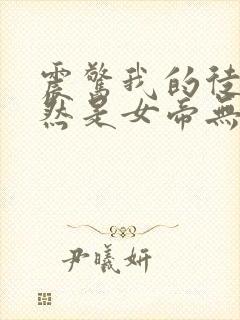 震驚我的徒
然是女帝無
尹曦妍